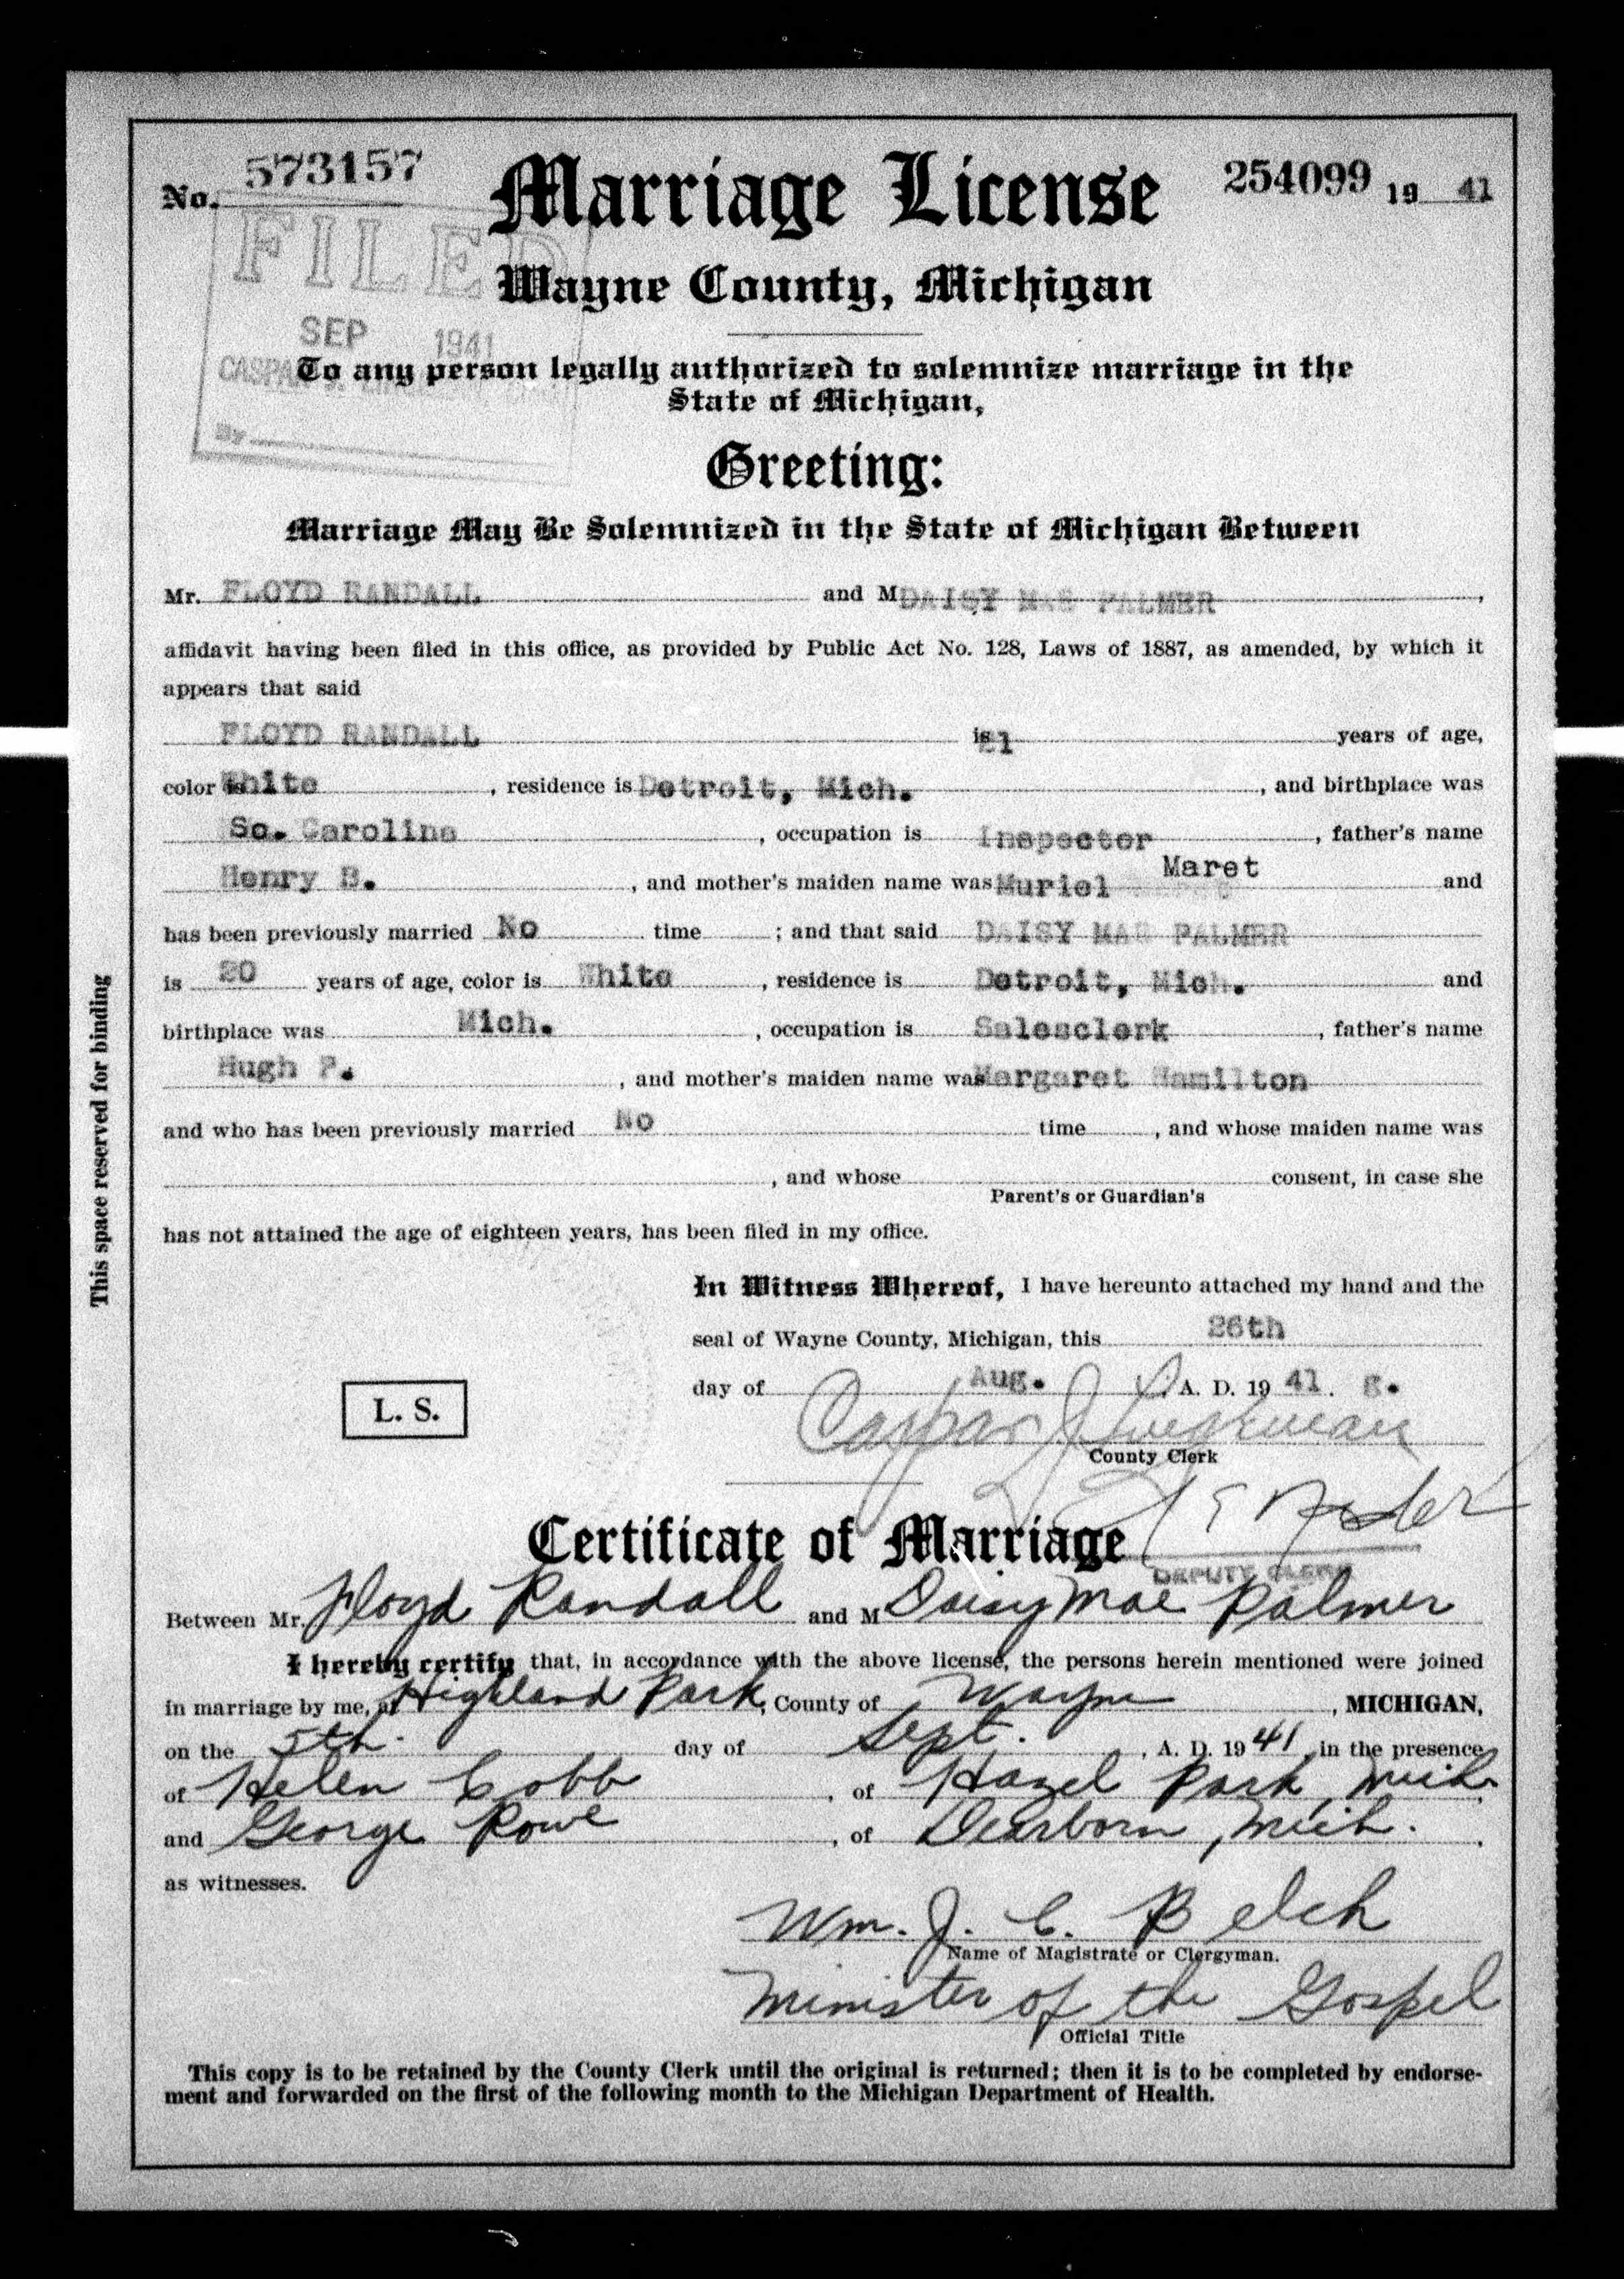 No. 573157 Marriage License 254099 19 41
FILED
Wayne County, Michigan
SEP 1941
To any person legally authorized to solemnize marriage in the
State of Michigan,
By
Greeting:
Marriage May Be Solemnized in the State of Michigan Between
Mr. FLOYD RANDALL and M DAISY MAE PALMER,
affidavit having been filed in this office, as provided by Public Act No. 128, Laws of 1887, as amended, by which it
appears that said
FLOYD RANDALL is 21 years of age,
color is White, residence is Detroit, Mich., and birthplace was
So. Carolina, occupation is Inspector, father's name
Henry B., and mother's maiden name was Muriel Maret and
has been previously married No time; and that said DAISY MAE PALMER
is 20 years of age, color is White, residence is Detroit, Mich. and
birthplace was Mich., occupation is Salesclerk, father's name
Hugh P., and mother's maiden name was Margaret Hamilton
and who has been previously married No time, and whose maiden name was
, and whose consent, in case she
Parent's or Guardian's
has not attained the age of eighteen years, has been filed in my office.
In Witness Whereof, I have hereunto attached my hand and the
seal of Wayne County, Michigan, this 26th
day of Aug. A. D. 19 41. g.
L. S.
Caspar J. Lingeman
County Clerk
Certificate of Marriage
DEPUTY CLERK
Between Mr. Floyd Randall and M Daisy Mae Palmer
I hereby certify that, in accordance with the above license, the persons herein mentioned were joined
in marriage by me, at Highland Park, County of Wayne, MICHIGAN,
on the 5th. day of Sept., A. D. 19 41, in the presence
of Helen Cobb, of Hazel Park, Mich.
and George Rowe, of Dearborn, Mich.
as witnesses.
Wm. J. C. Belch
Name of Magistrate or Clergyman.
Minister of the Gospel
Official Title
This copy is to be retained by the County Clerk until the original is returned; then it is to be completed by endorse-
ment and forwarded on the first of the following month to the Michigan Department of Health.
This space reserved for binding